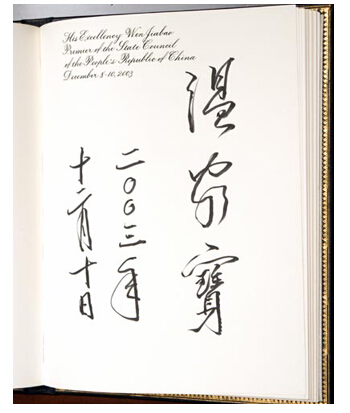 His Excellency Wen Jiabao
Premier of the State Council
of the People's Republic of China
December 8-10, 2003
溫家寶
二〇〇三年
十二月十日